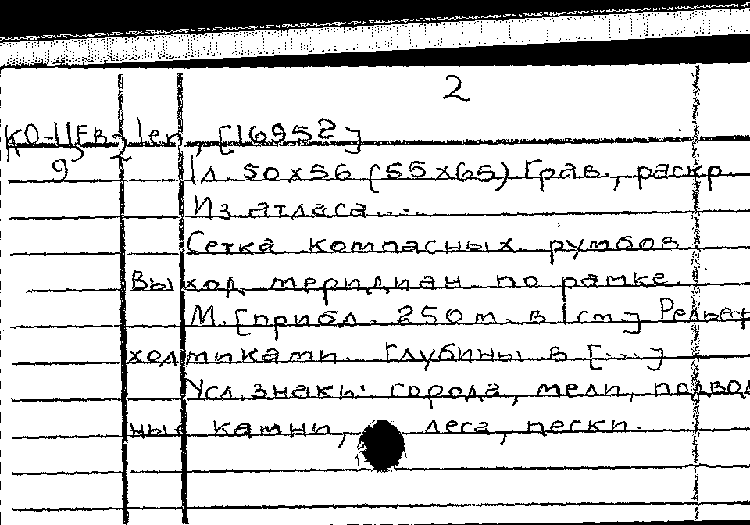 2
КО-11Ев-2 len, [1695?]
9
1 л. 50х56 (55х65) Грав., раскр.
Из атласа...
Сетка компасных румбов
Выход. меридиан по рамке.
М. [прибл. 250 m. в 1 cm] Рельеф
холмиками. Глубины в [...]
Усл. знаки: города, мели, подвод
ные камни, леса, пески.